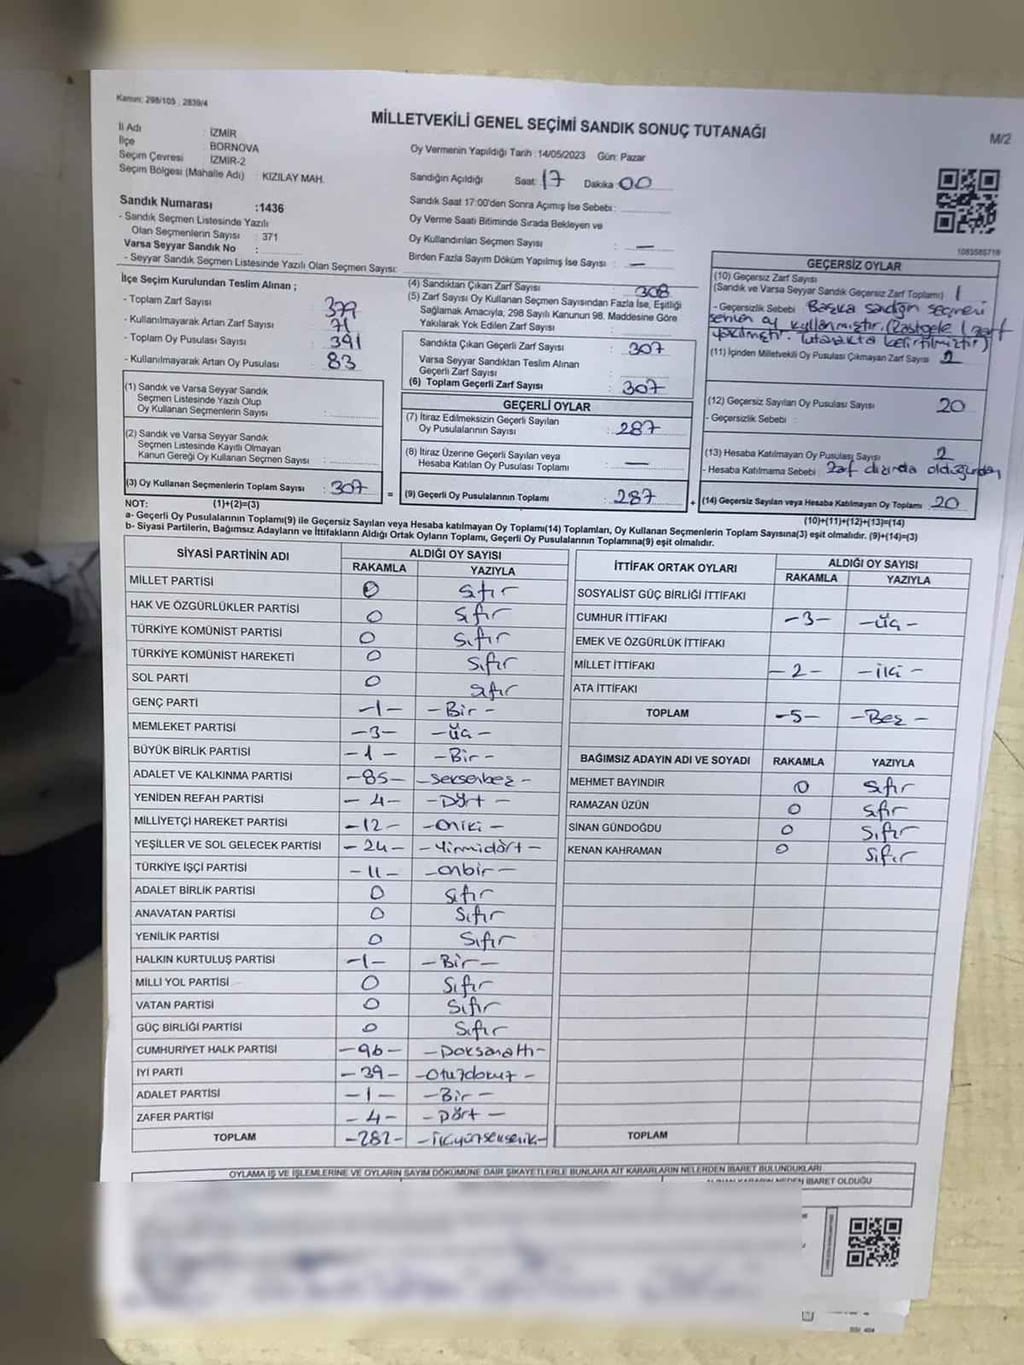 Kanun: 298/105 , 2839/4
MİLLETVEKİLİ GENEL SEÇİMİ SANDIK SONUÇ TUTANAĞI
M/2
İl Adı : İZMİR
İlçe : BORNOVA
Seçim Çevresi : İZMİR-2
Seçim Bölgesi (Mahalle Adı) : KIZILAY MAH.
Sandık Numarası :1436
- Sandık Seçmen Listesinde Yazılı
Olan Seçmenlerin Sayısı : 371
Varsa Seyyar Sandık No :
- Seyyar Sandık Seçmen Listesinde Yazılı Olan Seçmen Sayısı:
Oy Vermenin Yapıldığı Tarih :14/05/2023 Gün: Pazar
Sandığın Açıldığı Saat: 17 Dakika 00
Sandık Saat 17:00'den Sonra Açımış İse Sebebi :
Oy Verme Saati Bitiminde Sırada Bekleyen ve
Oy Kullandırılan Seçmen Sayısı : —
Birden Fazla Sayım Döküm Yapılmış İse Sayısı : —
1083585718
İlçe Seçim Kurulundan Teslim Alınan ;
- Toplam Zarf Sayısı : 379
- Kullanılmayarak Artan Zarf Sayısı : 71
- Toplam Oy Pusulası Sayısı : 391
- Kullanılmayarak Artan Oy Pusulası : 83
(1) Sandık ve Varsa Seyyar Sandık
Seçmen Listesinde Yazılı Olup
Oy Kullanan Seçmenlerin Sayısı :
(2) Sandık ve Varsa Seyyar Sandık
Seçmen Listesinde Kayıtlı Olmayan
Kanun Gereği Oy Kullanan Seçmen Sayısı :
(3) Oy Kullanan Seçmenlerin Toplam Sayısı : 307
(1)+(2)=(3)
(4) Sandıktan Çıkan Zarf Sayısı : 308
(5) Zarf Sayısı Oy Kullanan Seçmen Sayısından Fazla İse, Eşitliği
Sağlamak Amacıyla, 298 Sayılı Kanunun 98. Maddesine Göre
Yakılarak Yok Edilen Zarf Sayısı :
Sandıkta Çıkan Geçerli Zarf Sayısı : 307
Varsa Seyyar Sandıktan Teslim Alınan
Geçerli Zarf Sayısı :
(6) Toplam Geçerli Zarf Sayısı : 307
GEÇERLİ OYLAR
(7) İtiraz Edilmeksizin Geçerli Sayılan
Oy Pusulalarının Sayısı : 287
(8) İtiraz Üzerine Geçerli Sayılan veya
Hesaba Katılan Oy Pusulası Toplamı : —
= (9) Geçerli Oy Pusulalarının Toplamı : 287 +
GEÇERSİZ OYLAR
(10) Geçersiz Zarf Sayısı
(Sandık ve Varsa Seyyar Sandık Geçersiz Zarf Toplamı) : 1
- Geçersizlik Sebebi : Başka sandığın seçmeni
oy kullanmıştır. (Rastgele 1 zarf
yakılmıştır. Tutanakta belirtilmiştir)
(11) İçinden Milletvekili Oy Pusulası Çıkmayan Zarf Sayısı :
(12) Geçersiz Sayılan Oy Pusulası Sayısı : 20
- Geçersizlik Sebebi :
(13) Hesaba Katılmayan Oy Pusulası Sayısı :
- Hesaba Katılmama Sebebi : Zarf dışında olduğundan
(14) Geçersiz Sayılan veya Hesaba Katılmayan Oy Toplamı : 20
(10)+(11)+(12)+(13)=(14)
NOT:
a- Geçerli Oy Pusulalarının Toplamı(9) ile Geçersiz Sayılan veya Hesaba katılmayan Oy Toplamı(14) Toplamları, Oy Kullanan Seçmenlerin Toplam Sayısına(3) eşit olmalıdır. (9)+(14)=(3)
b- Siyasi Partilerin, Bağımsız Adayların ve İttifakların Aldığı Ortak Oyların Toplamı, Geçerli Oy Pusulalarının Toplamına(9) eşit olmalıdır.
SİYASİ PARTİNİN ADI ALDIĞI OY SAYISI
RAKAMLA YAZIYLA
MİLLET PARTİSİ 0 Sıfır
HAK VE ÖZGÜRLÜKLER PARTİSİ 0 Sıfır
TÜRKİYE KOMÜNİST PARTİSİ 0 Sıfır
TÜRKİYE KOMÜNİST HAREKETİ 0 Sıfır
SOL PARTİ 0 Sıfır
GENÇ PARTİ -1- -Bir-
MEMLEKET PARTİSİ -3- -Üç-
BÜYÜK BİRLİK PARTİSİ -1- -Bir-
ADALET VE KALKINMA PARTİSİ -85- -Seksenbeş-
YENİDEN REFAH PARTİSİ -4- -Dört-
MİLLİYETÇİ HAREKET PARTİSİ -12- -Oniki-
YEŞİLLER VE SOL GELECEK PARTİSİ -24- -Yirmidört-
TÜRKİYE İŞÇİ PARTİSİ -11- -onbir-
ADALET BİRLİK PARTİSİ 0 Sıfır
ANAVATAN PARTİSİ 0 Sıfır
YENİLİK PARTİSİ 0 Sıfır
HALKIN KURTULUŞ PARTİSİ -1- -Bir-
MİLLİ YOL PARTİSİ 0 Sıfır
VATAN PARTİSİ 0 Sıfır
GÜÇ BİRLİĞİ PARTİSİ 0 Sıfır
CUMHURİYET HALK PARTİSİ -96- -Doksanaltı-
İYİ PARTİ -39- -Otuzdokuz-
ADALET PARTİSİ -1- -Bir-
ZAFER PARTİSİ -4- -Dört-
TOPLAM -282- -İkiyüzseksenik-
İTTİFAK ORTAK OYLARI ALDIĞI OY SAYISI
RAKAMLA YAZIYLA
SOSYALİST GÜÇ BİRLİĞİ İTTİFAKI
CUMHUR İTTİFAKI -3- -Üç-
EMEK VE ÖZGÜRLÜK İTTİFAKI
MİLLET İTTİFAKI -2- -İki-
ATA İTTİFAKI
TOPLAM -5- -Beş-
BAĞIMSIZ ADAYIN ADI VE SOYADI RAKAMLA YAZIYLA
MEHMET BAYINDIR 0 Sıfır
RAMAZAN ÜZÜN 0 Sıfır
SİNAN GÜNDOĞDU 0 Sıfır
KENAN KAHRAMAN 0 Sıfır
TOPLAM
OYLAMA İŞ VE İŞLEMLERİNE VE OYLARIN SAYIM DÖKÜMÜNE DAİR ŞİKAYETLERLE BUNLARA AİT KARARLARIN NELERDEN İBARET BULUNDUKLARI
ALINAN KARARIN NEDEN İBARET OLDUĞU